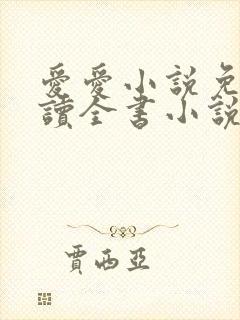 愛愛小説免
讀全書小說
賈西亞